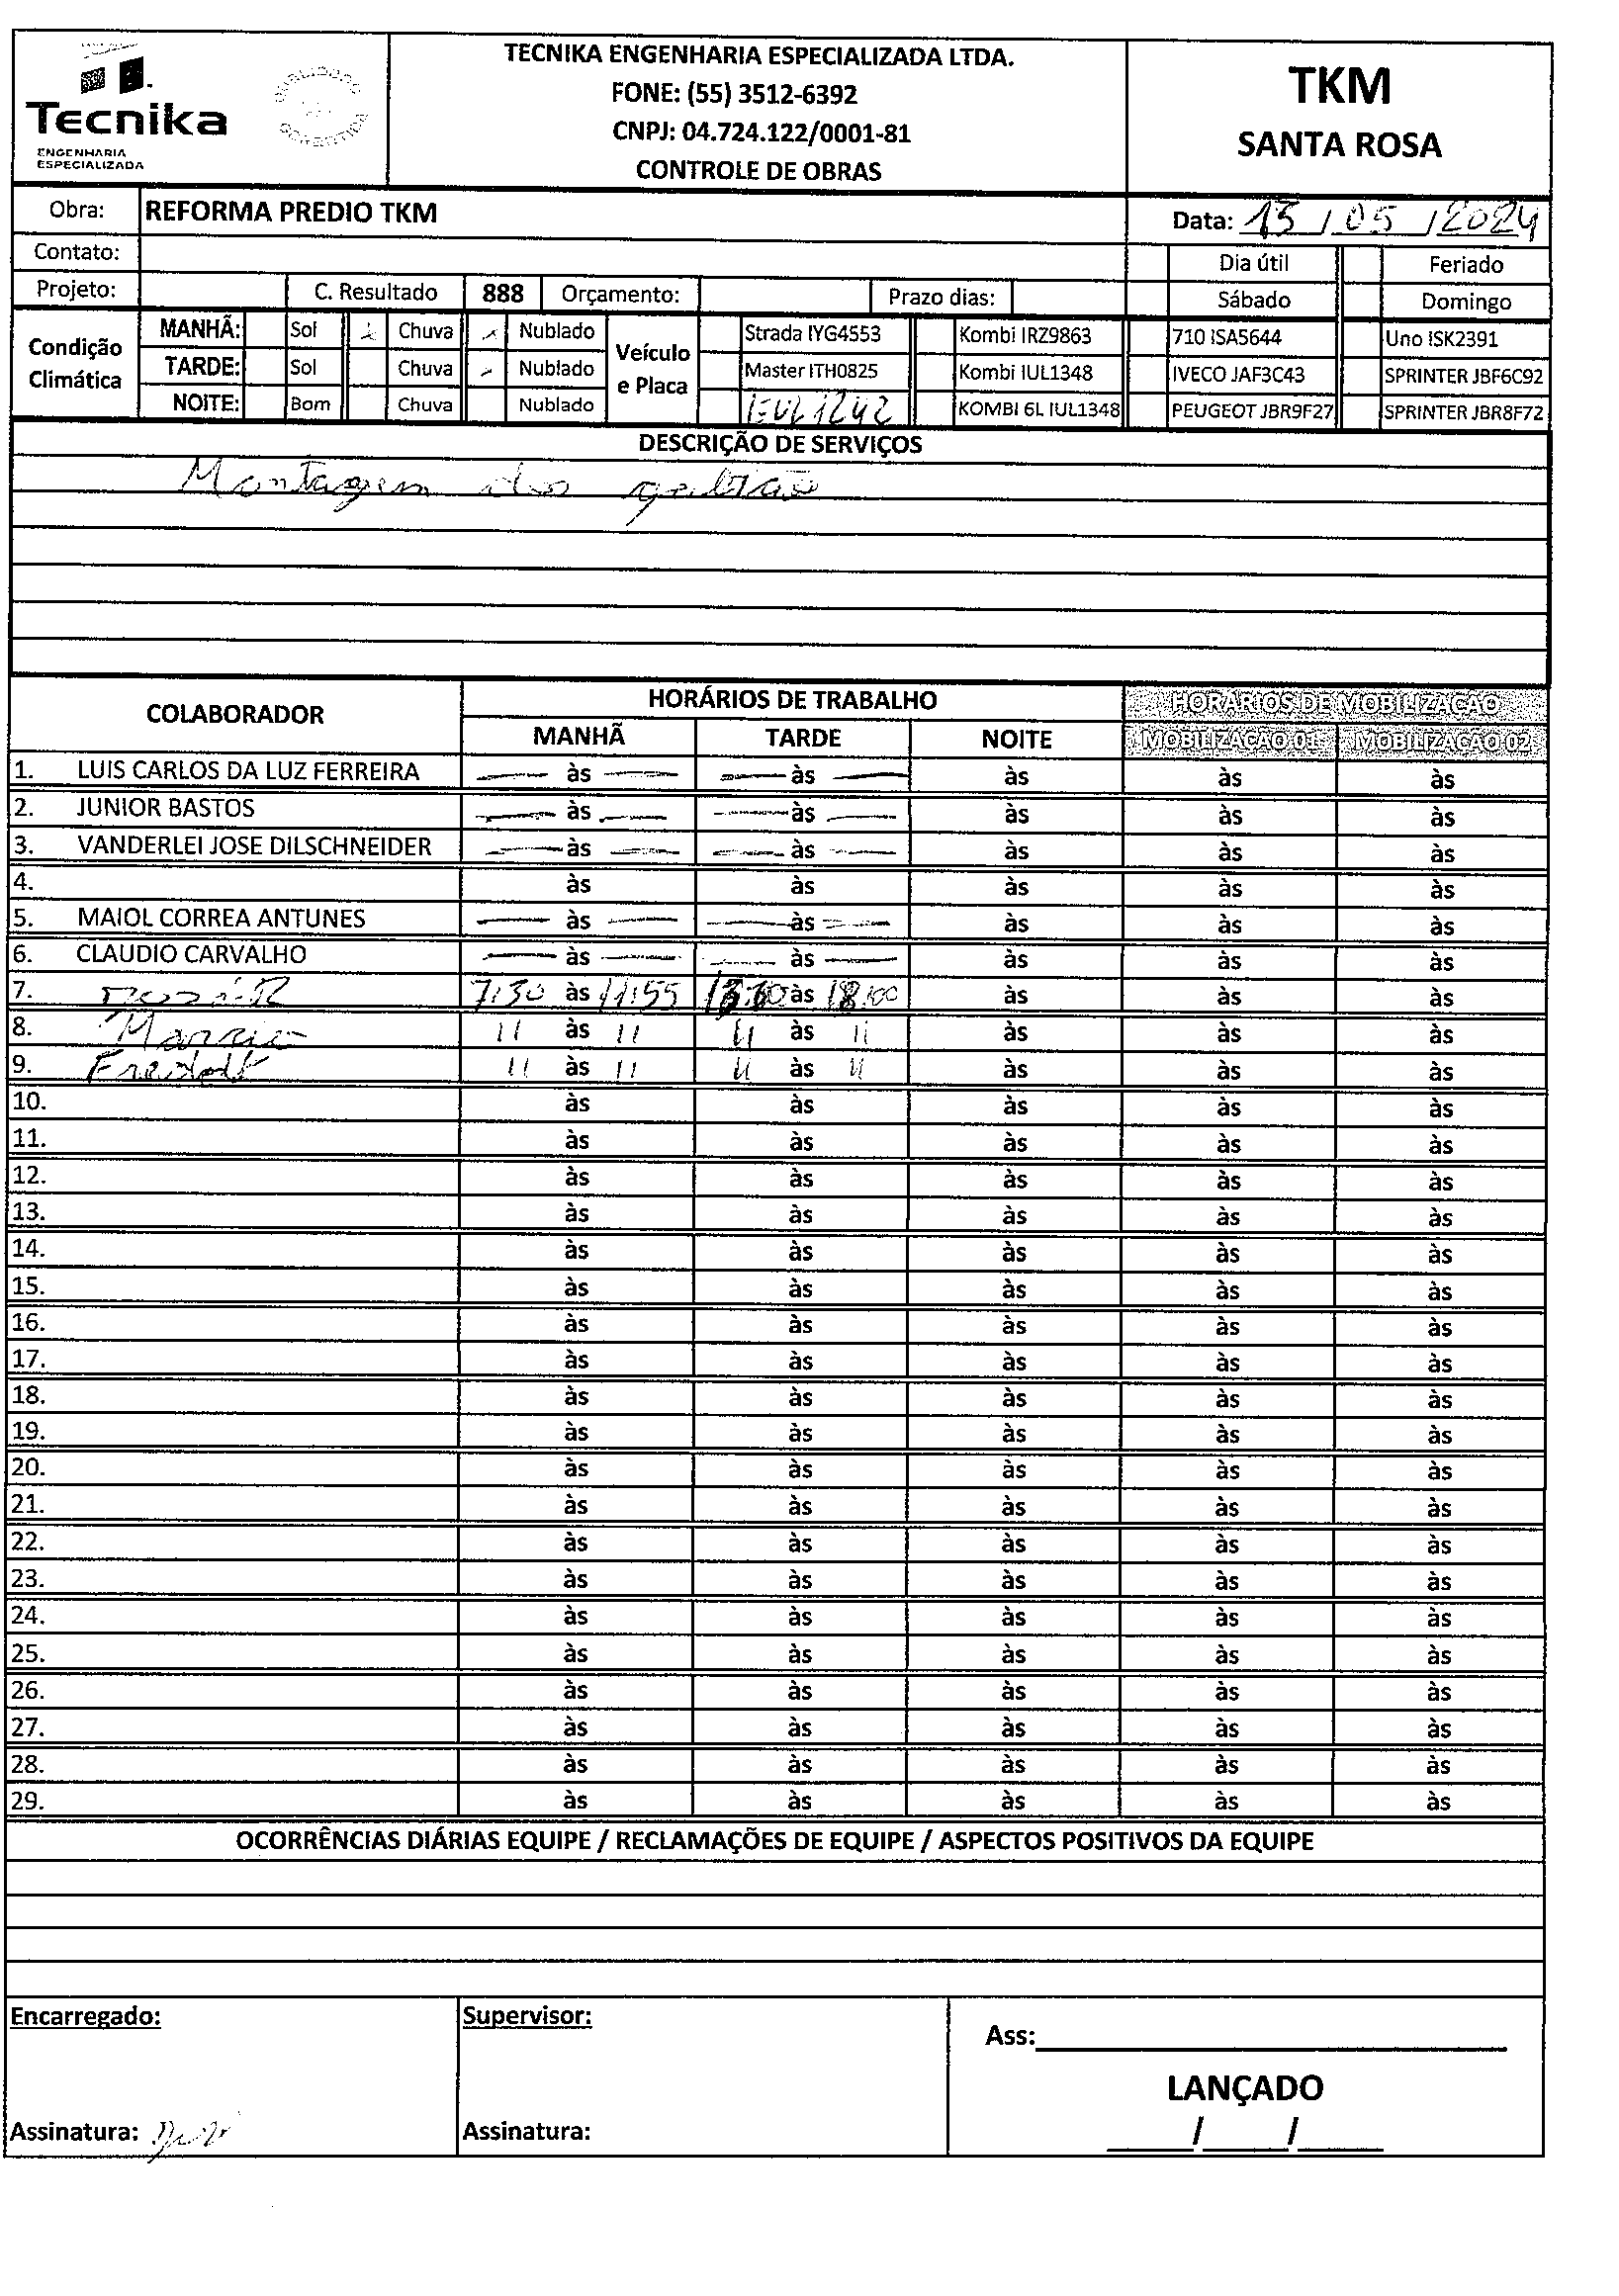 Tecnika
ENGENHARIA
ESPECIALIZADA
TECNIKA ENGENHARIA ESPECIALIZADA LTDA.
FONE: (55) 3512-6392
CNPJ: 04.724.122/0001-81
CONTROLE DE OBRAS
TKM
SANTA ROSA
Obra: REFORMA PREDIO TKM
Data: 13/05/2024
Contato:
Dia útil Feriado
Projeto: C. Resultado 888 Orçamento: Prazo dias: Sábado Domingo
Condição Climática
MANHÃ: Sol x Chuva x Nublado
TARDE: Sol Chuva Nublado
NOITE: Bom Chuva Nublado
Veículo e Placa
Strada IYG4553 Kombi IRZ9863 710 ISA5644 Uno ISK2391
Master ITH0825 Kombi IUL1348 IVECO JAF3C43 SPRINTER JBF6C92
KOMBI 6L IUL1348 PEUGEOT JBR9F27 SPRINTER JBR8F72
DESCRIÇÃO DE SERVIÇOS
Montagem dos
COLABORADOR HORÁRIOS DE TRABALHO HORÁRIOS DE MOBILIZAÇÃO
MANHÃ TARDE NOITE MOBILIZAÇÃO 01 MOBILIZAÇÃO 02
1. LUIS CARLOS DA LUZ FERREIRA — às — — às — às às às
2. JUNIOR BASTOS — às — — às — às às às
3. VANDERLEI JOSE DILSCHNEIDER — às — — às — às às às
4. às às às às às
5. MAIOL CORREA ANTUNES — às — — às — às às às
6. CLAUDIO CARVALHO — às — — às — às às às
7. 7:30 às 11:55 às 18:00 às às às
8. 11 às 11 11 às 11 às às às
9. 11 às 11 11 às 11 às às às
10. às às às às às
11. às às às às às
12. às às às às às
13. às às às às às
14. às às às às às
15. às às às às às
16. às às às às às
17. às às às às às
18. às às às às às
19. às às às às às
20. às às às às às
21. às às às às às
22. às às às às às
23. às às às às às
24. às às às às às
25. às às às às às
26. às às às às às
27. às às às às às
28. às às às às às
29. às às às às às
OCORRÊNCIAS DIÁRIAS EQUIPE / RECLAMAÇÕES DE EQUIPE / ASPECTOS POSITIVOS DA EQUIPE
Encarregado: Supervisor:
Ass:
LANÇADO
Assinatura: Assinatura: / /